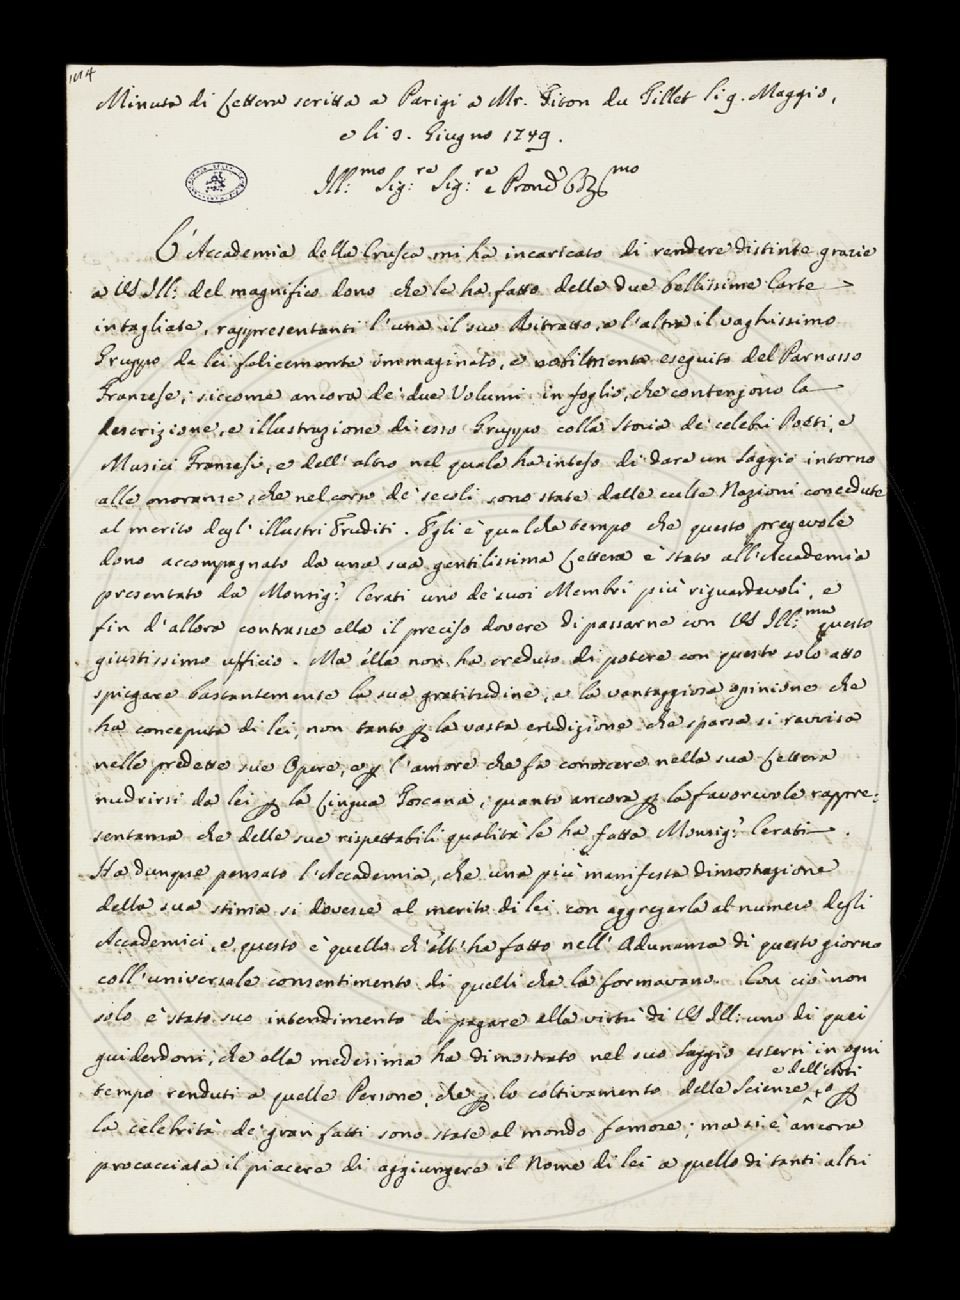 Minuta di Lettera scritta a Parigi a Mr. Titon du Tillet li 9. Maggio,
e li 2. Giugno 1749.
Ill:mo Sig:re Sig:re e Prone
L'Accademia della Crusca mi ha incaricato di rendere distinte grazie
a VS Ill: del magnifico dono che le ha fatto delle due bellissime Carte
intagliate, rappresentanti l'una il suo Ritratto, e l'altra il vaghissimo
Gruppo da lei felicemente immaginato, e nobilmente eseguito del Parnasso
Franzese; siccome ancora de' due Volumi in foglio, che contengono la
descrizione, e illustrazione di esso Gruppo colla Storia de' celebri Poeti, e
Musici Franzesi, e dell'altro nel quale ha inteso di dare un Saggio intorno
alle onoranze, che nel corso de' secoli sono state dalle culte Nazioni concedute
al merito degl'illustri Eruditi. Egli è qualche tempo che questo pregevole
dono accompagnato da una sua gentilissima Lettera è stato all'Accademia
presentato da Monsig:r Cerati uno de' suoi Membri più riguardevoli, e
fin d'allora contrasse ella il preciso dovere di passarne con VS Ill:ma questo
giustissimo ufficio. Ma ella non ha creduto di potere con questo solo atto
spiegare bastantemente la sua gratitudine, e la vantaggiosa opinione che
ha conceputa di lei, non tanto p la vasta erudizione che sparsa si ravvisa
nelle predette sue Opere, e p l'amore che fa conoscere nella sua Lettera
nudrirsi da lei p la Lingua Toscana, quanto ancora p la favorevole rappre:
sentanza che delle sue rispettabili qualità le ha fatta Monsig:r Cerati.
Ha dunque pensato l'Accademia, che una più manifesta dimostrazione
della sua stima si dovesse al merito di lei con aggregarla al numero degli
Accademici, e questo è quello ch'ell'ha fatto nell'Adunanza di questo giorno
coll'universale consentimento di quelli che la formavano. Con ciò non
solo è stato suo intendimento di pagare alla virtù di VS Ill: uno di quei
guiderdoni, che ella medesima ha dimostrato nel suo Saggio essersi in ogni
tempo renduti a quelle Persone, che p lo coltivamento delle Scienze e dell'Arti, o p
la celebrità de' gran fatti sono state al mondo famose; ma si è ancora
procacciata il piacere di aggiungere il Nome di lei a quello di tanti altri